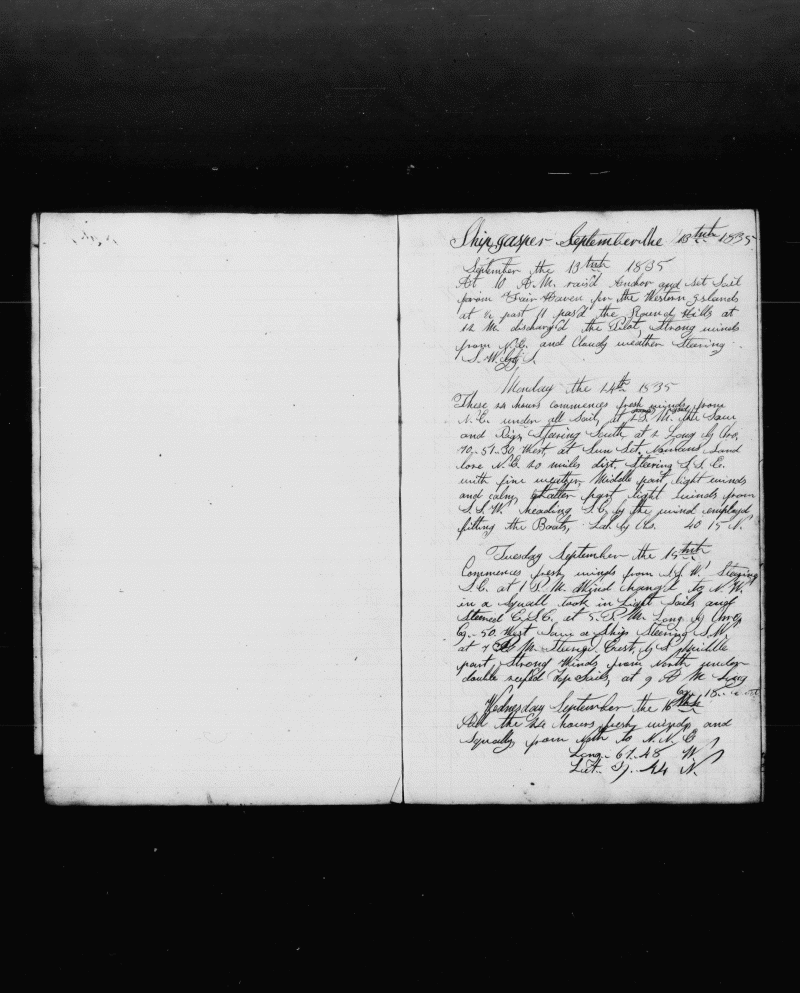 Ship Jasper September the 13th 1835
September the 13th 1835
At 10 A.M. rais'd Anchor and Set Sail
from Fair Haven for the Western Islands
at ½ past 11 pas'd the Round Hills at
12 M. discharg'd the Pilot, Strong winds
from N.E. and Cloudy weather Steering
S.W. by S.
Monday the 14th 1835
These 24 hours commences fresh winds from
N.E. under all Sail, at 2 P.M. Saw
and Steering South at 2 Long by Cro,
70..51..30 West, at Sun Set,
bore N.E. 20 miles dist, Steering S.S.E.
with fine weather, Middle part, light winds
and calm, Latter part light winds from
S.S.W. heading S.E. by the wind employd
fitting the Boats, Lat. by Obs. 40 15 N.
Tuesday September the 15th
Commences fresh winds from S.S.W. Steering
S.E. at 1 P.M. Wind chang'd to N.W.
in a Squall took in Light Sails and
Steered E.S.E. at 5. P.M. Long. by Cro
69..50. West Saw a Ship Steering S.W.
at 7 P.M. East, by S Middle
part, Strong Winds from North under
double reefed Top Sails, at 9 A M Long
18..
Wednesday September the 16th
All the 24 hours fresh winds and
Squally from North to N.N.E
Long.. 67..48 W
Lat.. 44 N.